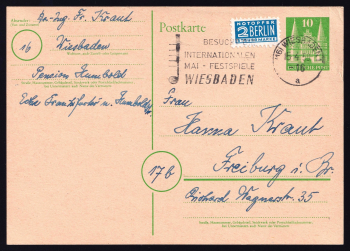 Dr-Ing Fr. Kraut
16
Wiesbaden
Pension Humboldt
Ecke Frankfurter u. Humboldtstr
Postkarte
NOTOPFER
2 BERLIN
STEUERMARKE
10
BESUCHT
INTERNATIONALEN
MAI-FESTSPIELE
WIESBADEN
WIESBADEN
a
Frau
Hanna Kraut
17b
Freiburg i. Br.
Richard Wagnerstr. 35